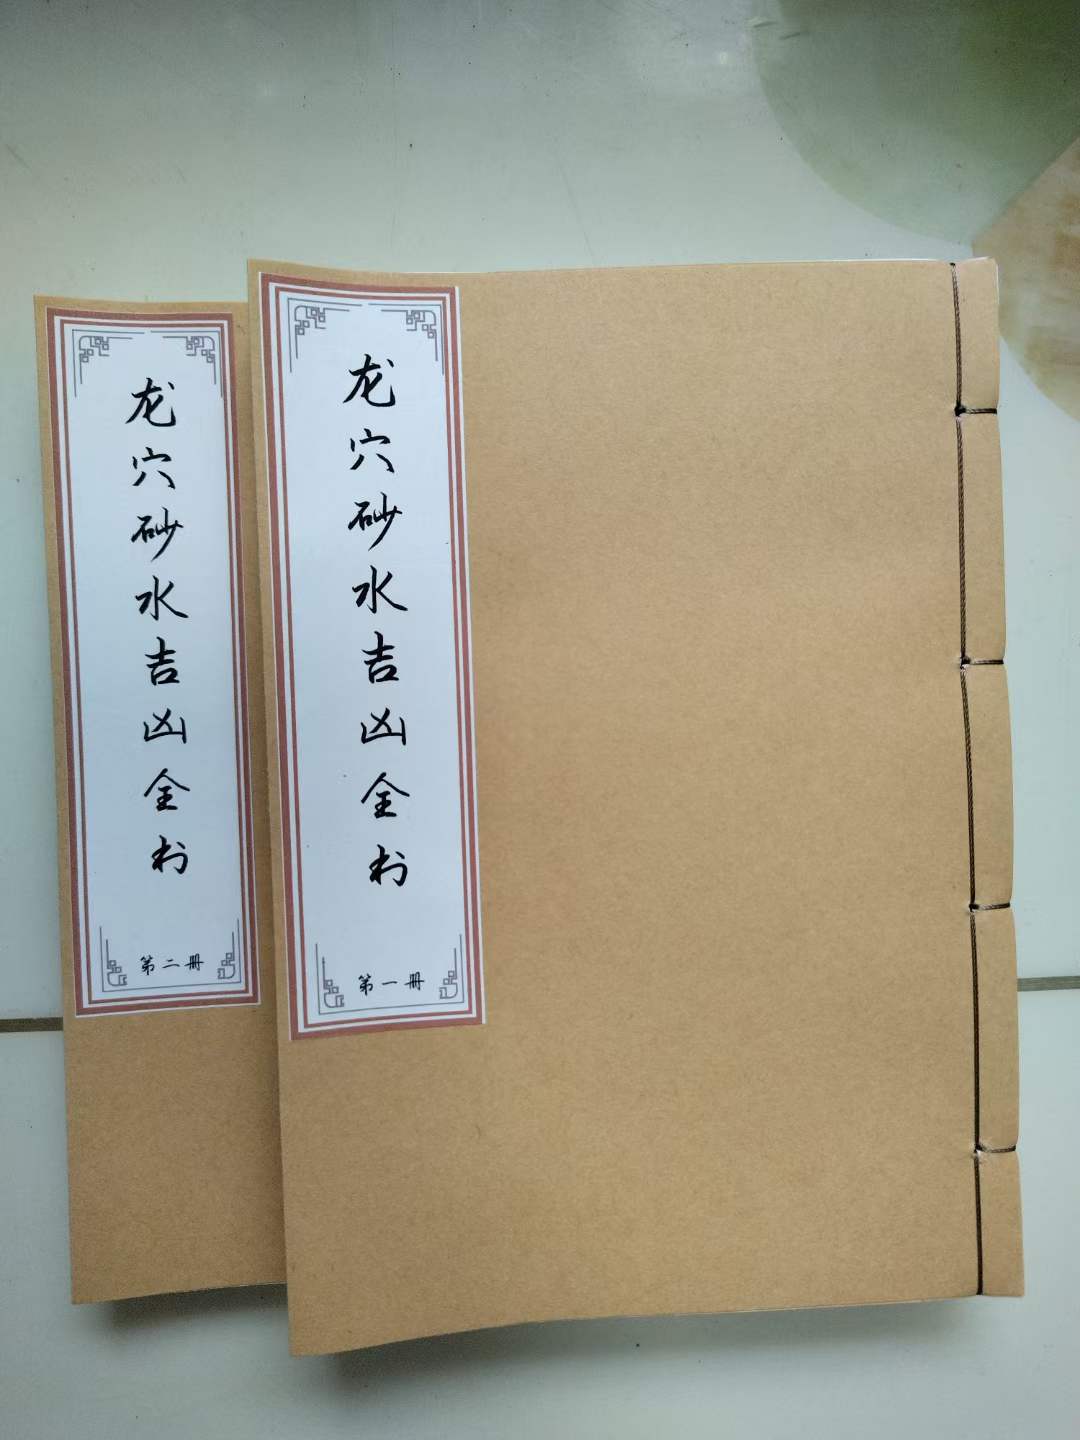 龙穴砂水吉凶全书
第二册
龙穴砂水吉凶全书
第一册